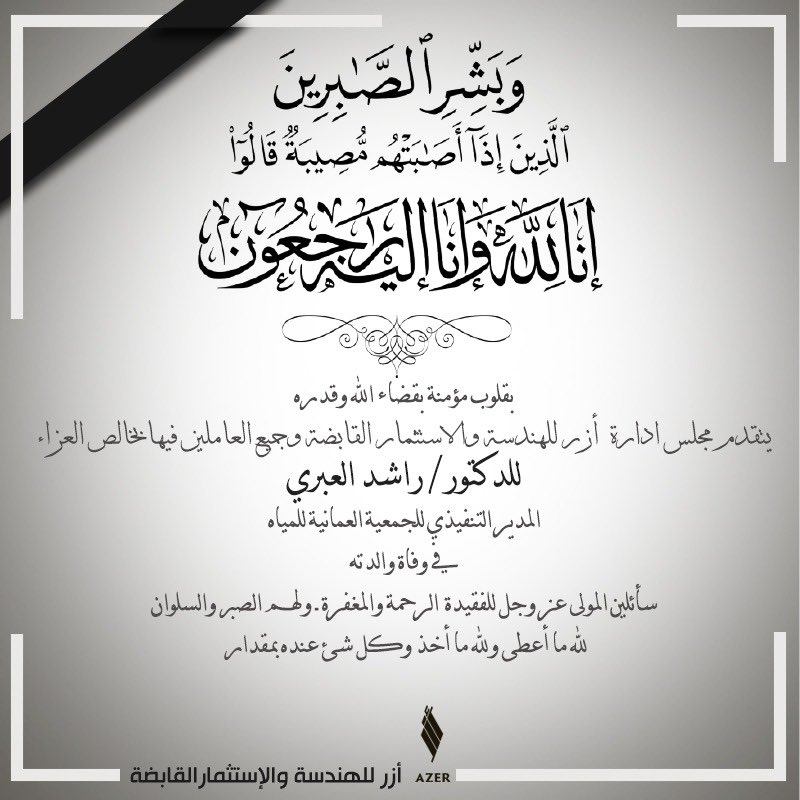 وَبَشِّرِ ٱلصَّـٰبِرِينَ
ٱلَّذِينَ إِذَآ أَصَـٰبَتْهُم مُّصِيبَةٌ قَالُوٓا۟
إنا لله وإنا إليه راجعون
بقلوب مؤمنة بقضاء الله وقدره
يتقدم مجلس ادارة أزر للهندسة والاستثمار القابضة وجميع العاملين فيها بخالص العزاء
للدكتور/ راشد العبري
المدير التنفيذي للجمعية العمانية للمياه
في وفاة والدته
سائلين المولى عز وجل للفقيدة الرحمة والمغفرة. ولهم الصبر والسلوان
لله ما أعطى ولله ما أخذ وكل شئ عنده بمقدار
أزر للهندسة والإستثمار القابضة
AZER